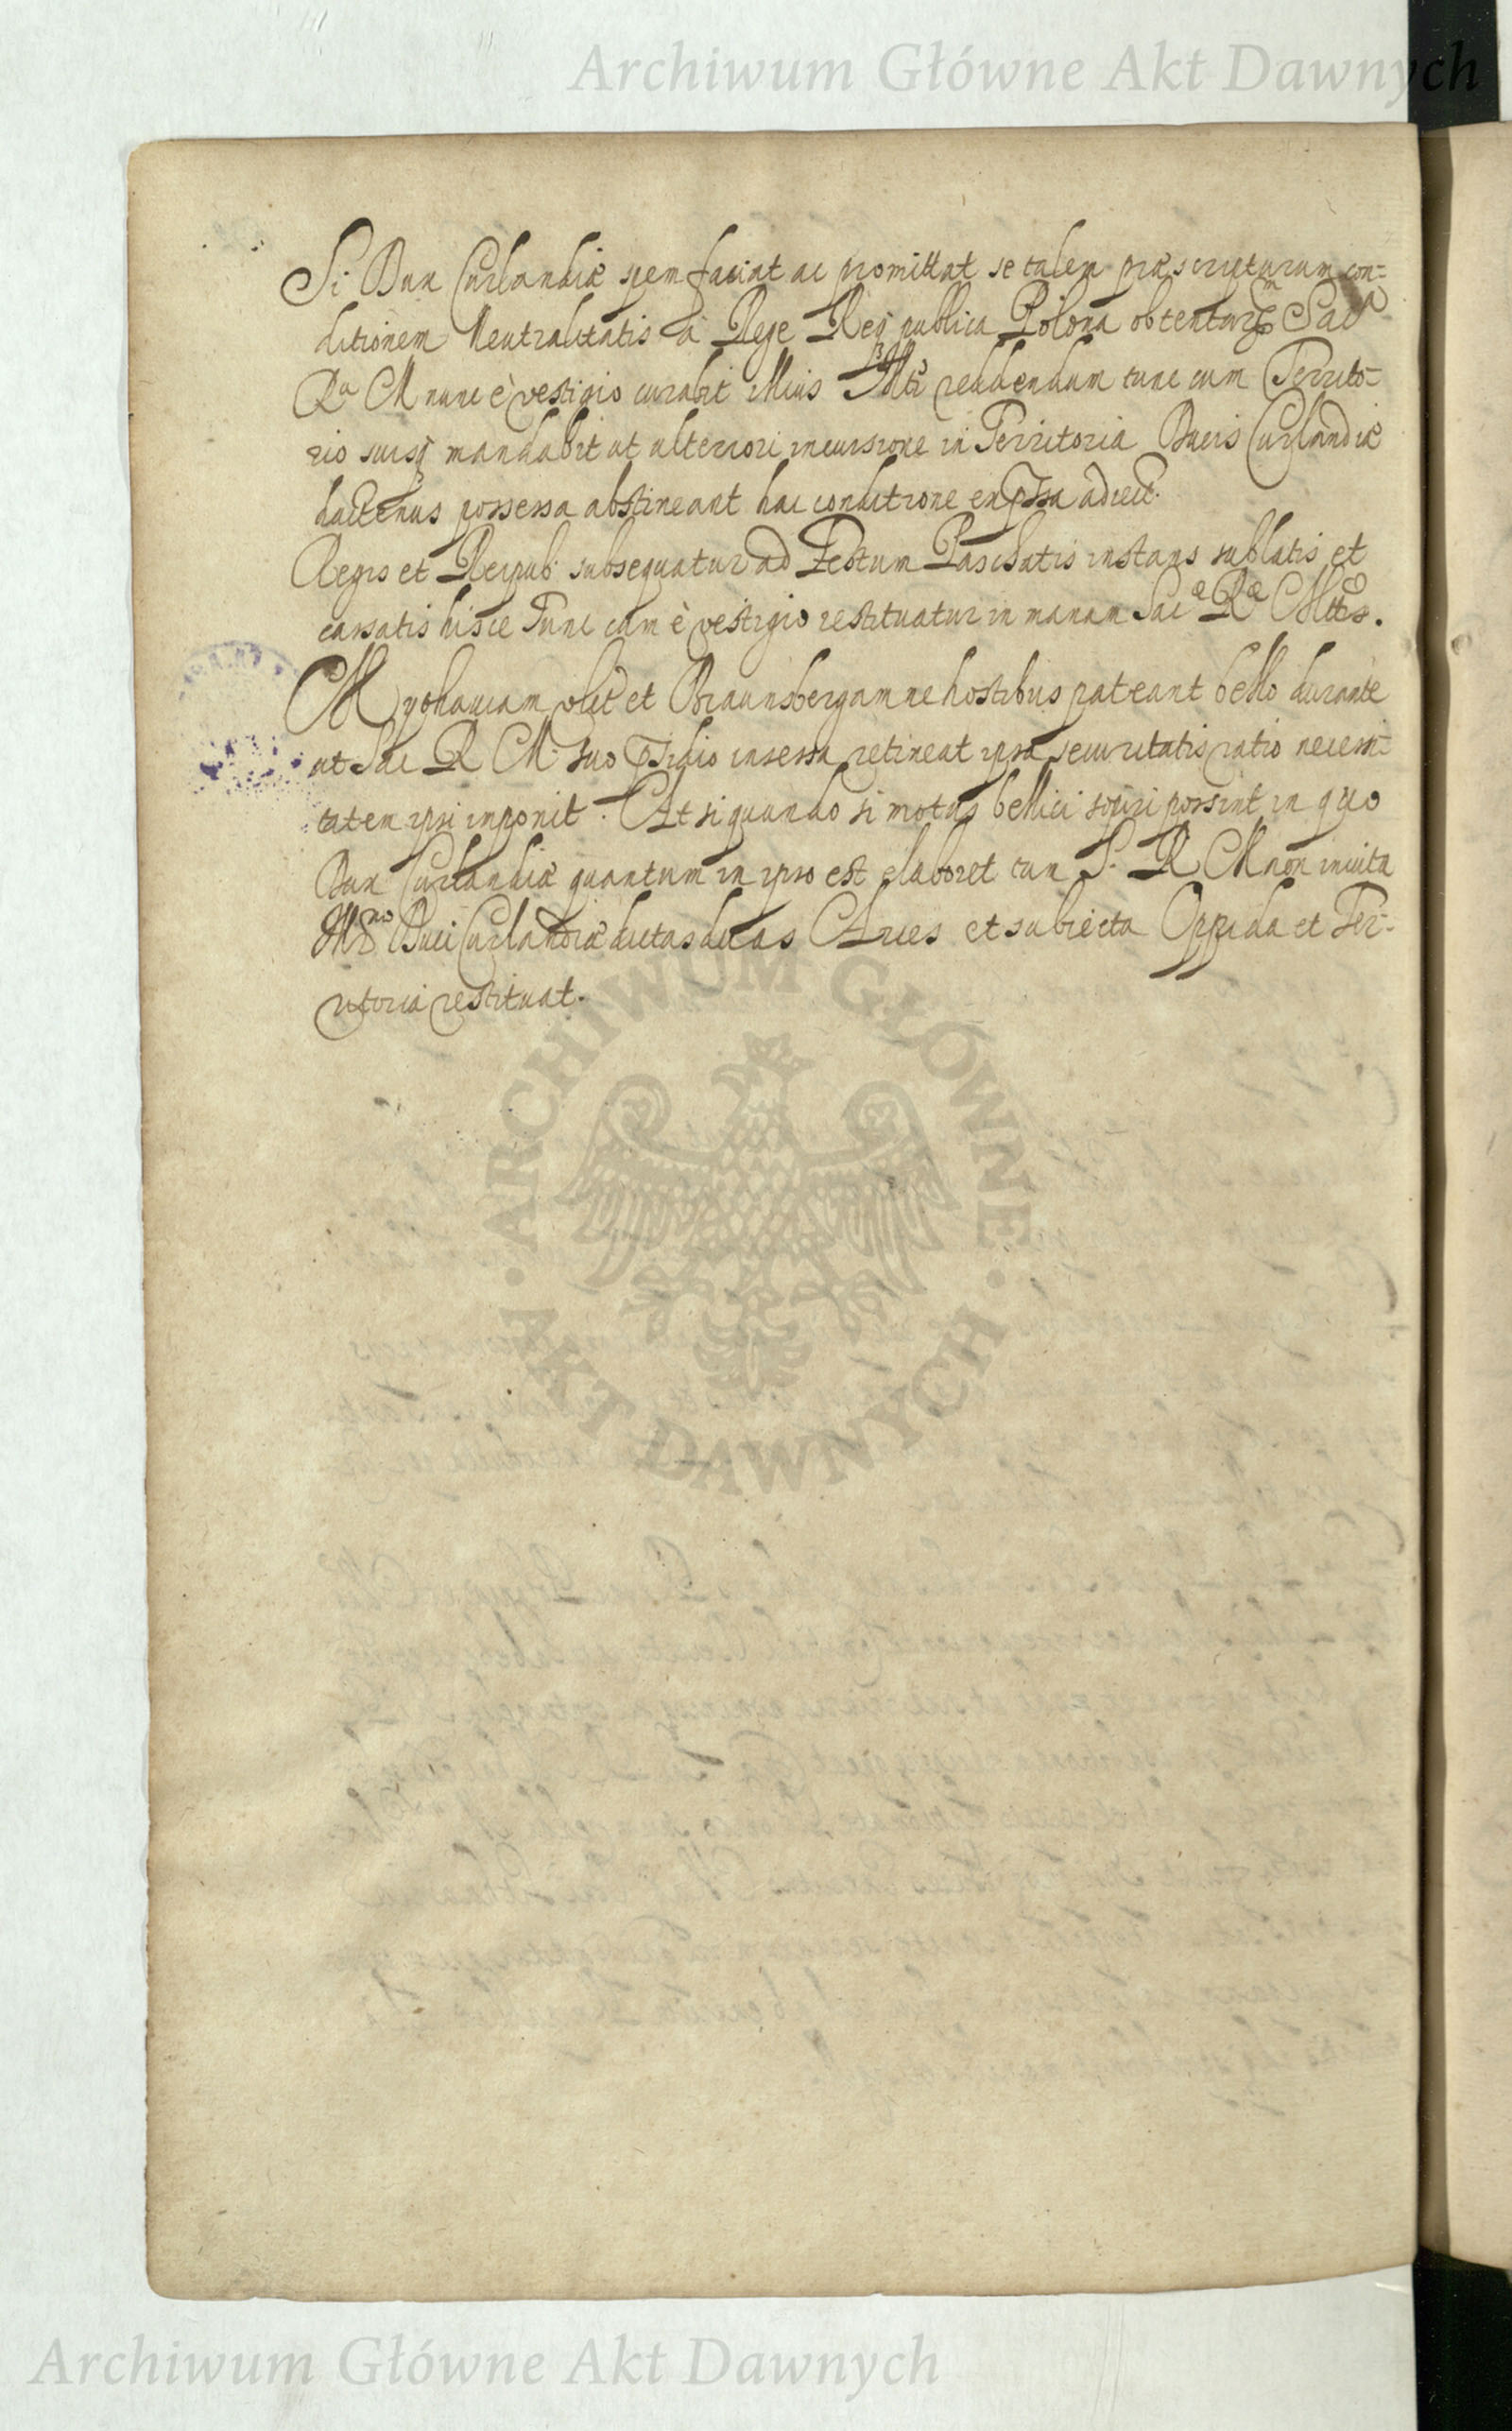 Archiwum Główne Akt Dawnych
Si Dux Curlandiæ spem faciat ac promittat se talem præscripturam con=
ditionem Neutralitatis à Rege Reiq publica Polona obtenturum Sacra
Ra M nunc è vestigio curabit illius Mti reddendum tunc cum Territo=
rio suisq mandabit ut ulteriori incursione in Territoria Ducis Curlandiæ
hactenus possessa abstineant hac conditione expressa adiect.
Regis et Reipub: subsequatur ad Festum Paschatis instans sublatis et
cassatis hisce Tunc cum è vestigio restituatur in manam Sacæ Ræ Mttis.
Mythauiam et Braunsbergam ne hostibus pateant bello durante
ut Sac R M. suo insessa retineat ipsa securitatis ratio necessi=
tatem ipsi imponit. At si quando si motus bellici sopiri possint in quo
Dux Curlandiæ quantum in ipso est elaboret tun S. R M non inuita
Duci Curlandiæ dictas duas Arces et subiecta Oppida et Ter=
ritoria restituat.
ARCHIWUM GŁÓWNE
AKT DAWNYCH
Archiwum Główne Akt Dawnych